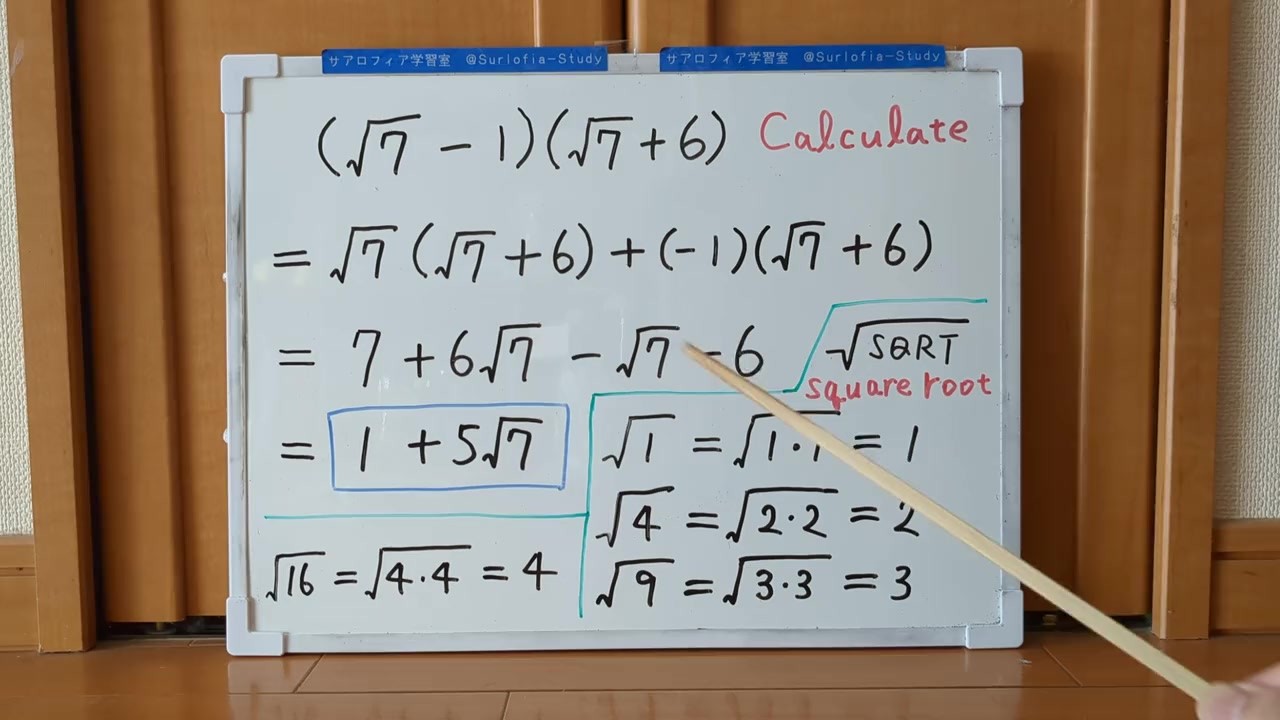 サアロフィア学習室 @Surlofia-Study
サアロフィア学習室 @Surlofia-Study
(√7 − 1)(√7 + 6) Calculate
= √7 (√7 + 6) + (−1)(√7 + 6)
= 7 + 6√7 − √7 − 6
= 1 + 5√7
√SQRT
square root
√1 = √1·1 = 1
√4 = √2·2 = 2
√9 = √3·3 = 3
√16 = √4·4 = 4